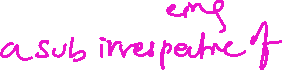 emg
a sub irrespective of